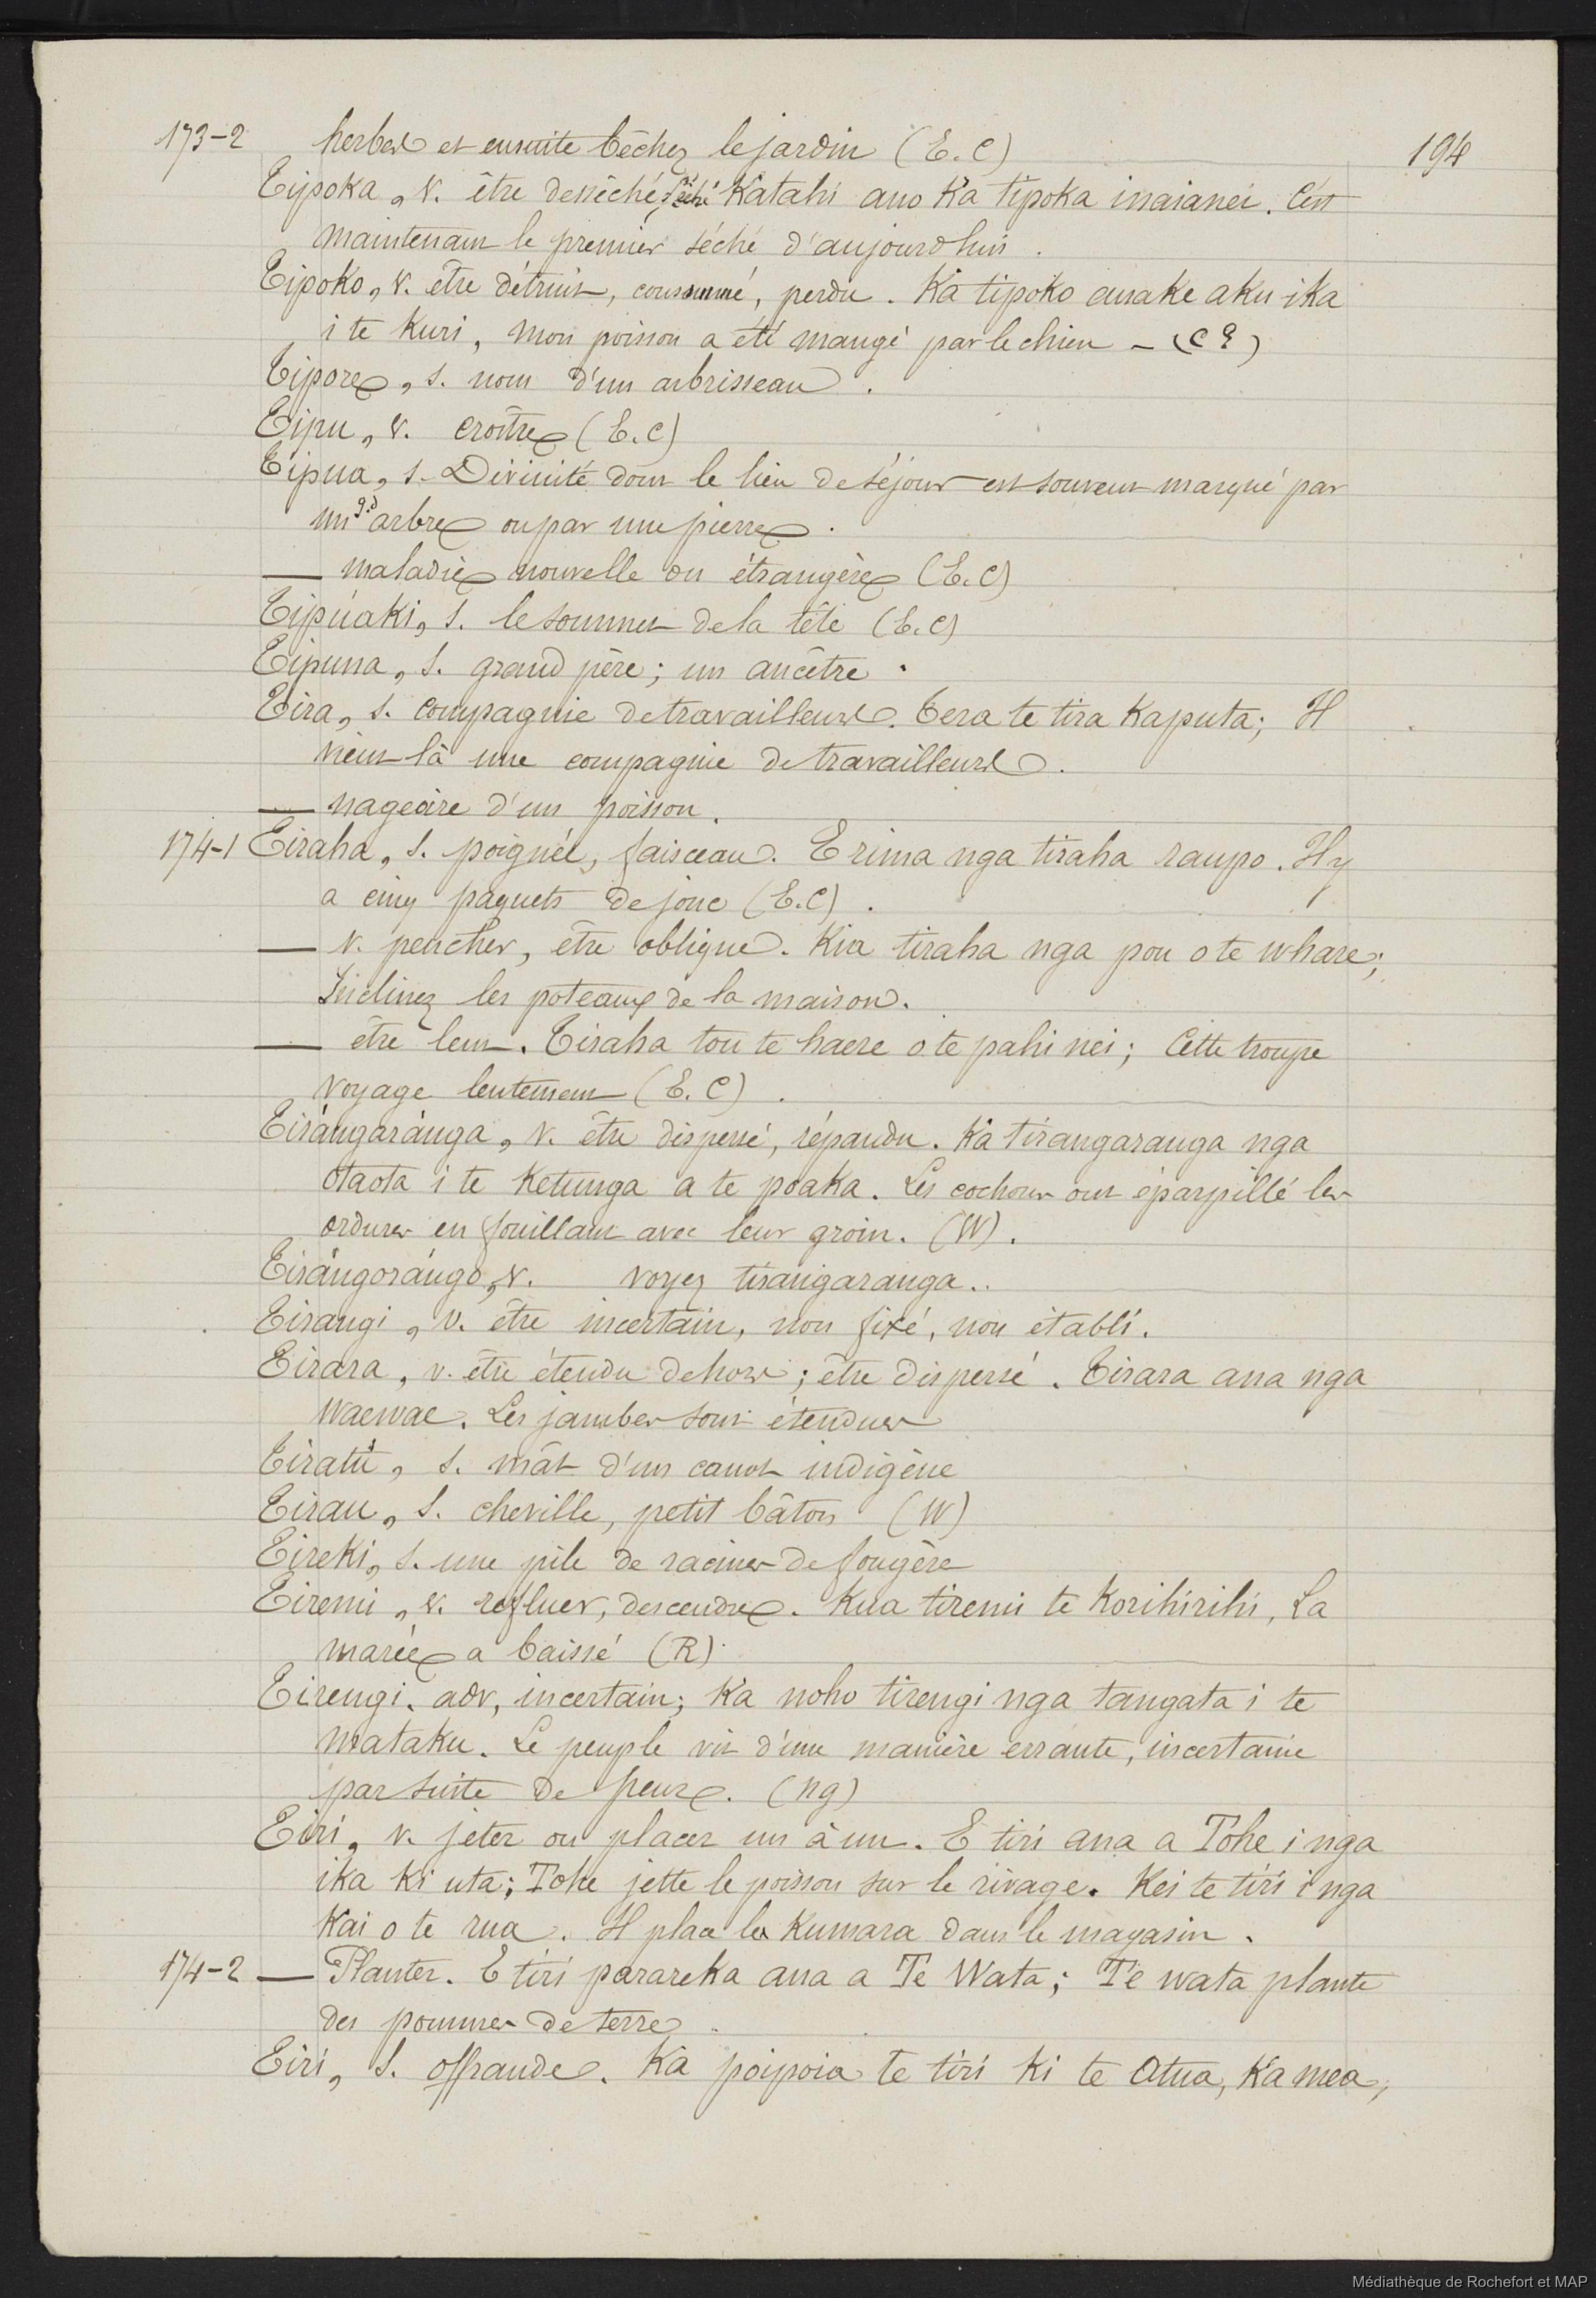 173-2 herbes et ensuite bêchez le jardin (E.C) 194
Tipoka, v. être desséché, séché Katahi ano Ka tipoka inaianei. C'est
maintenant le premier séché d'aujourd'hui.
Tipoko, v. être détruit, consommé, perdu. Ka tipoko anake aku ika
i te Kuri, mon poisson a été mangé par le chien -
Tipore, s. nom d'un arbrisseau.
Tipu, v. croître (E.C)
Tipua, s. Divinité dont le lieu de séjour est souvent marqué par
un gd arbre ou par une pierre.
— maladie nouvelle ou étrangère (E.C)
Tipúaki, s. le sommet de la tête (E.C)
Tipuna, s. grand père; un ancêtre.
Tira, s. compagnie de travailleurs. Tera te tira Kaputa; Il
vient là une compagnie de travailleurs.
— nageoire d'un poisson.
174-1 Tiraha, s. poignée, faisceau. E rima nga tiraha raupo. Il y
a cinq paquets de jonc (E.C).
— v. pencher, être oblique. Kia tiraha nga pou o te whare;
Inclinez les poteaux de la maison.
— être lent. Tiraha tou te haere o te pahi nei; Cette troupe
voyage lentement (E.C).
Tirángaránga, v. être dispersé, répandu. Ka tirangaranga nga
otaota i te Ketunga a te poaka. Les cochons ont éparpillé les
ordures en fouillant avec leur groin. (W).
Tirángorángo, v. voyez tirangaranga..
Tirangi, v. être incertain, non fixé, non établi.
Tirara, v. être étendu dehors; être dispersé. Tirara ana nga
waewae. Les jambes sont étendues
Tiratú, s. mât d'un canot indigène
Tirau, s. cheville, petit bâton (W)
Tireki, s. une pile de racines de fougère
Tiremi, v. refluer, descendre. Kua tiremi te Korihirihi, La
marée a baissé (R).
Tirengi. adv, incertain; Ka noho tirengi nga tangata i te
mataku. Le peuple vit d'une manière errante, incertaine
par suite de peur. (ng)
Tiri, v. jeter ou placer un à un. E tiri ana a Tohe i nga
ika ki uta; Tohe jette le poisson sur le rivage. Kei te tiri i nga
Kai o te rua. Il place les Kumara dans le magasin.
174-2 — Planter. E tiri parareka ana a Te Wata; Te wata plante
des pommes de terre.
Tiri, s. offrande. Ka poipoia te tiri ki te Atua, Ka mea,
Médiathèque de Rochefort et MAP